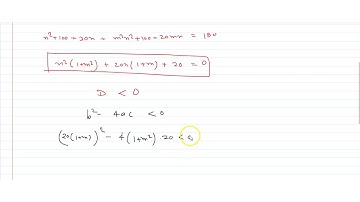 x²+100+20x + m²x²+100+20mx = 180
x²(1+m²) + 20x(1+m) + 20 = 0
D < 0
b² - 4ac < 0
(20(1+m))² - 4(1+m²).20 < 0